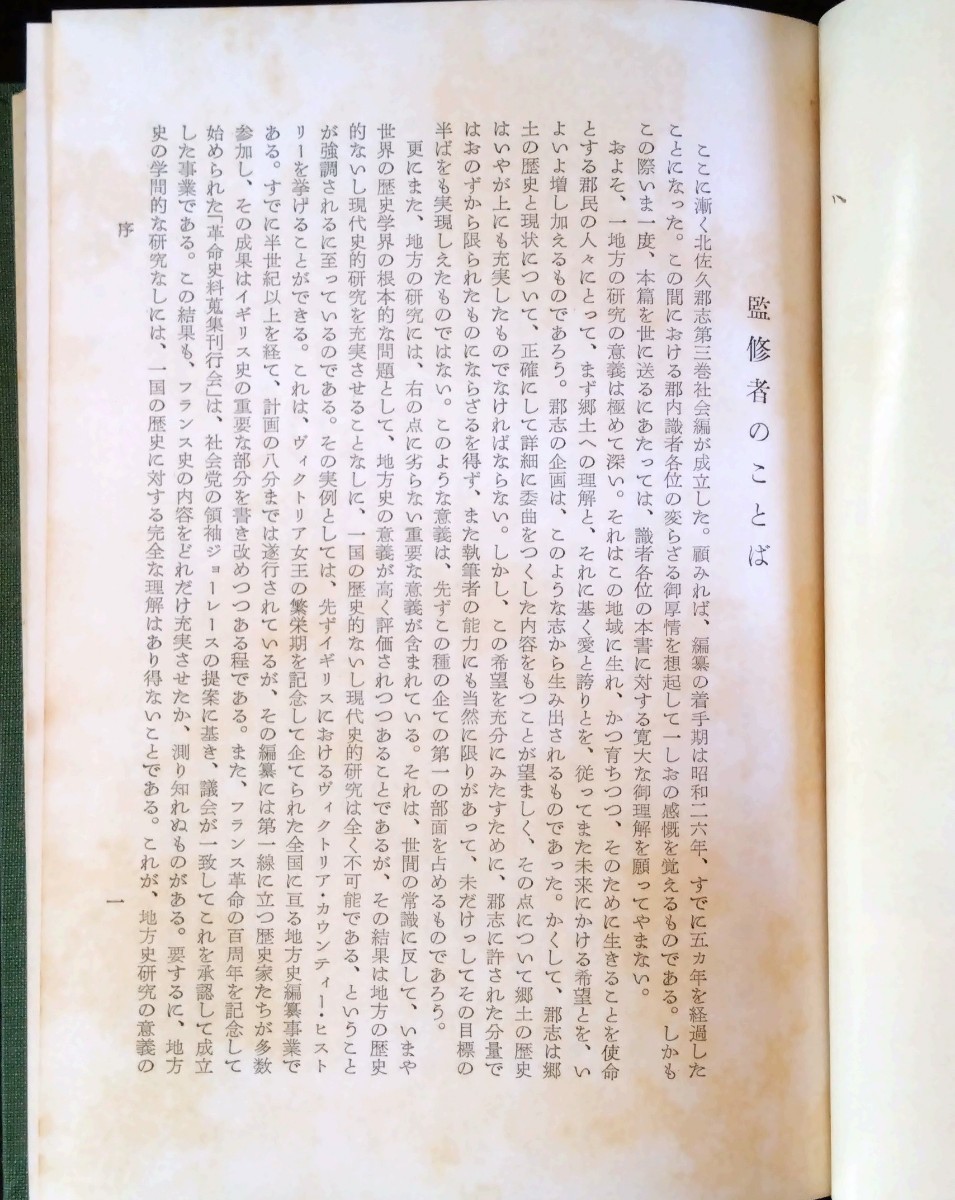 監修者のことば
ここに漸く北佐久郡志第三巻社会編が成立した。顧みれば、編纂の着手期は昭和二六年、すでに五ヵ年を経過した
ことになった。この間における郡内識者各位の変らざる御厚情を想起して一しおの感慨を覚えるものである。しかも
この際いま一度、本篇を世に送るにあたっては、識者各位の本書に対する寛大な御理解を願ってやまない。
およそ、一地方の研究の意義は極めて深い。それはこの地域に生れ、かつ育ちつつ、そのために生きることを使命
とする郡民の人々にとって、まず郷土への理解と、それに基く愛と誇りとを、従ってまた未来にかける希望とを、い
よいよ増し加えるものであろう。郡志の企画は、このような志から生み出されるものであった。かくして、郡志は郷
土の歴史と現状について、正確にして詳細に委曲をつくした内容をもつことが望ましく、その点について郷土の歴史
はいやが上にも充実したものでなければならない。しかし、この希望を充分にみたすために、郡志に許された分量で
はおのずから限られたものにならざるを得ず、また執筆者の能力にも当然に限りがあって、未だけっしてその目標の
半ばをも実現しえたものではない。このような意義は、先ずこの種の企ての第一の部面を占めるものであろう。
更にまた、地方の研究には、右の点に劣らない重要な意義が含まれている。それは、世間の常識に反して、いまや
世界の歴史学界の根本的な問題として、地方史の意義が高く評価されつつあることであるが、その結果は地方の歴史
的ないし現代史的研究を充実させることなしに、一国の歴史的ないし現代史的研究は全く不可能である、ということ
が強調されるに至っているのである。その実例としては、先ずイギリスにおけるヴィクトリア・カウンティー・ヒスト
リーを挙げることができる。これは、ヴィクトリア女王の繁栄期を記念して企てられた全国に亘る地方史編纂事業で
ある。すでに半世紀以上を経て、計画の八分までは遂行されているが、その編纂には第一線に立つ歴史家たちが多数
参加し、その成果はイギリス史の重要な部分を書き改めつつある程である。また、フランス革命の百周年を記念して
始められた「革命史料蒐集刊行会」は、社会党の領袖ジョーレースの提案に基き、議会が一致してこれを承認して成立
した事業である。この結果も、フランス史の内容をどれだけ充実させたか、測り知れぬものがある。要するに、地方
史の学問的な研究なしには、一国の歴史に対する完全な理解はあり得ないことである。これが、地方史研究の意義の
序
一